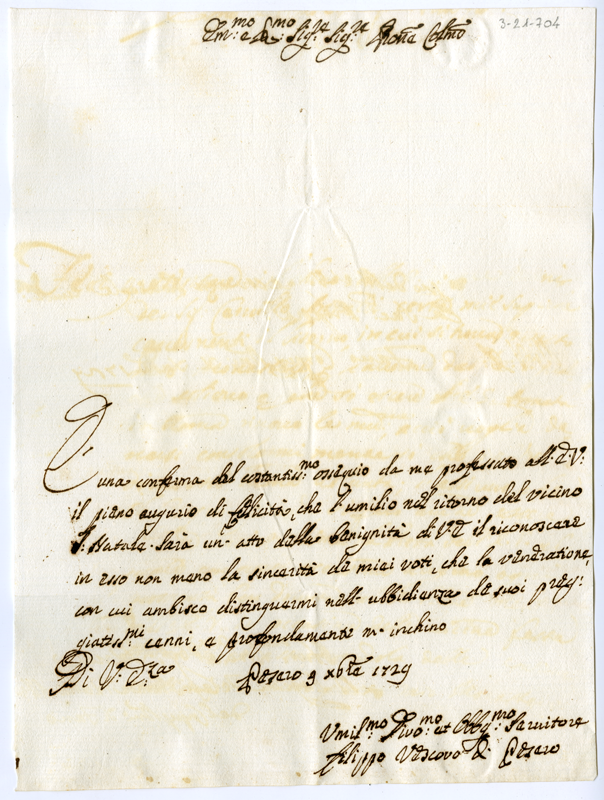 Em:mo e R:mo Sig:re Sig:re Prone Colmo
3-21-704
È una conferma del costantiss:mo ossequio da me professato all'E.V:
il pieno augurio di felicità, che l'umilio nel ritorno del vicino
S: Natale. Sarà un' atto della benignità di V.E il riconoscere
in esso non meno la sincerità de miei voti, che la venerazione,
con cui ambisco distinguermi nell' ubbidienza de suoi preg:
giatiss:mi cenni, e profondamente m'inchino
Di V: E:za Pesaro 9 xbre 1729
Vmil:mo Divo:mo et Obbg:mo Servitore
Filippo Vescovo di Pesaro